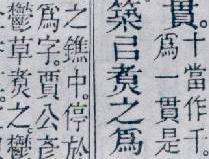 貫。十當作千。
爲一貫是
築已煑之爲
之鐎中。停於
爲字。賈公彥
鬱草煑之。鬱